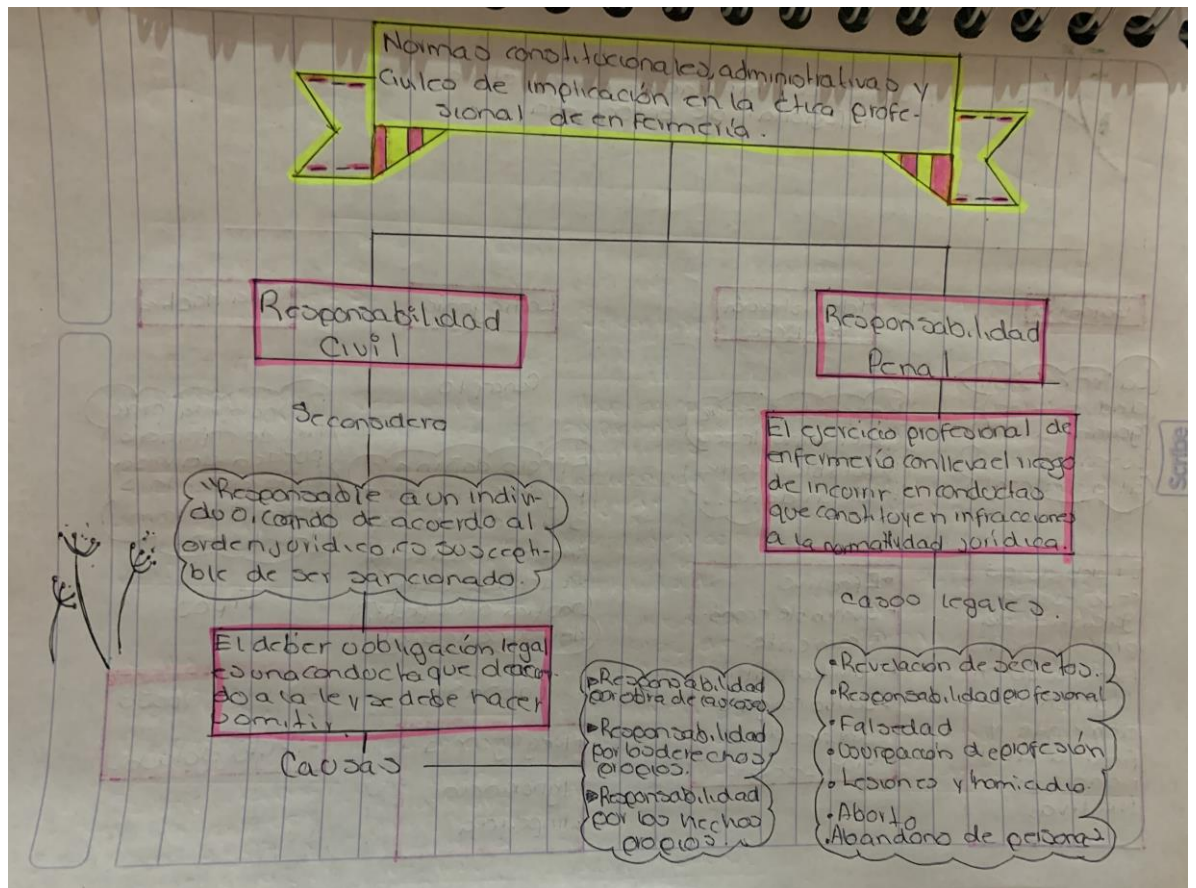 Normas constitucionales, administrativas y
Civiles de implicación en la ética profe-
sional de enfermería.
Responsabilidad
Civil
Se considera
"Responsable a un indivi-
duo, cuando de acuerdo al
orden jurídico, es suscepti-
ble de ser sancionado.
El deber u obligación legal
es una conducta que de acuer-
do a la ley se debe hacer
u omitir.
Causas
Responsabilidad
por obra de las cosas
Responsabilidad
por los derechos
propios.
Responsabilidad
por los hechos
propios.
Responsabilidad
Penal
El ejercicio profesional de
enfermería conlleva el riesgo
de incurrir en conductas
que constituyen infracciones
a la normatividad jurídica.
casos legales.
• Revelación de secretos.
• Responsabilidad profesional
• Falsedad
• Usurpación de profesión
• Lesiones y homicidio.
• Aborto
• Abandono de personas
Scribe